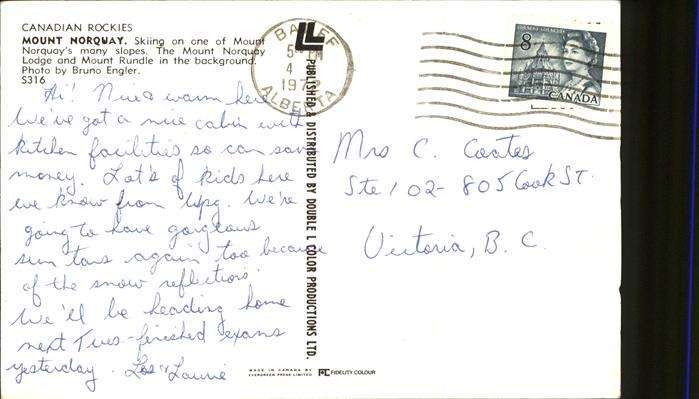 CANADIAN ROCKIES
MOUNT NORQUAY. Skiing on one of Mount
Norquay's many slopes. The Mount Norquay
Lodge and Mount Rundle in the background.
Photo by Bruno Engler.
S316
Hi! Nice & warm here
We've got a nice cabin with
kitchen facilities so can save
money. Lot's of kids here
we know from Wpg. We're
going to have gorgeous
sun tans again too because
of the snow reflection.
We'll be heading home
next Tues - finished exams
yesterday. Laurie
LL
PUBLISHED & DISTRIBUTED BY DOUBLE L COLOR PRODUCTIONS LTD.
BANFF
PM
4
ALBERTA
8
CANADA
Mrs C. Coates
Ste 102 - 805 Cook ST.
Victoria, B. C.
MADE IN CANADA BY
EVERGREEN PRESS LIMITED
FIDELITY COLOUR